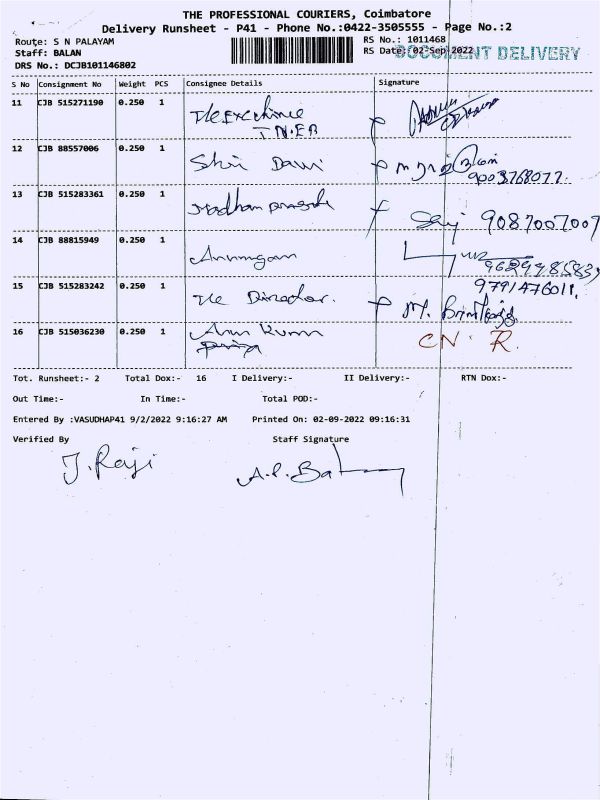 THE PROFESSIONAL COURIERS, Coimbatore
Delivery Runsheet - P41 - Phone No.:0422-3505555 - Page No.:2
Route: S N PALAYAM
RS No.: 1011468
Staff: BALAN
RS Date: 02-Sep-2022
DOCUMENT DELIVERY
DRS No.: DCJB101146802
S No Consignment No Weight PCS Consignee Details Signature
11 CJB 515271190 0.250 1
T.N.EB
12 CJB 88557006 0.250 1 Shri
9003768077.
13 CJB 515283361 0.250 1 Madhan
9087007007
14 CJB 88815949 0.250 1 Arumugam
15 CJB 515283242 0.250 1 The Director. M.
9791476011.
16 CJB 515036230 0.250 1 Arun Kumar
CN. R.
Tot. Runsheet:- 2 Total Dox:- 16 I Delivery:- II Delivery:- RTN Dox:-
Out Time:- In Time:- Total POD:-
Entered By :VASUDHAP41 9/2/2022 9:16:27 AM Printed On: 02-09-2022 09:16:31
Verified By Staff Signature
J. Raji